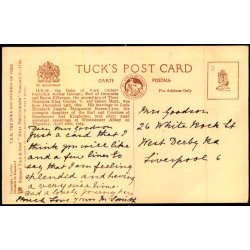 TUCK'S POST CARD
CARTE POSTALE
H.R.H. the Duke of York (Albert
Frederick Arthur George), Earl of Inverness
and Baron Killarney, the second son of Their
Majesties King George V. and Queen Mary, was
born December 14th, 1895. His marriage to Lady
Elizabeth Angela Marguerite Bowes-Lyon, the
daughter of the Earl and Countess of
Strathmore and Kinghorne, took place amid
splendid in Westminster Abbey on
Thursday, April 26th, 1923.
Dear Mrs Goodson,
Just a card that I
think you will like
and a few lines to
say that I am feeling
splendid and having
a very nice time.
and a lovely journey here
Much Love from M. Smith
Mrs Goodson
26 White Rock St
West Derby Rd
Liverpool 6